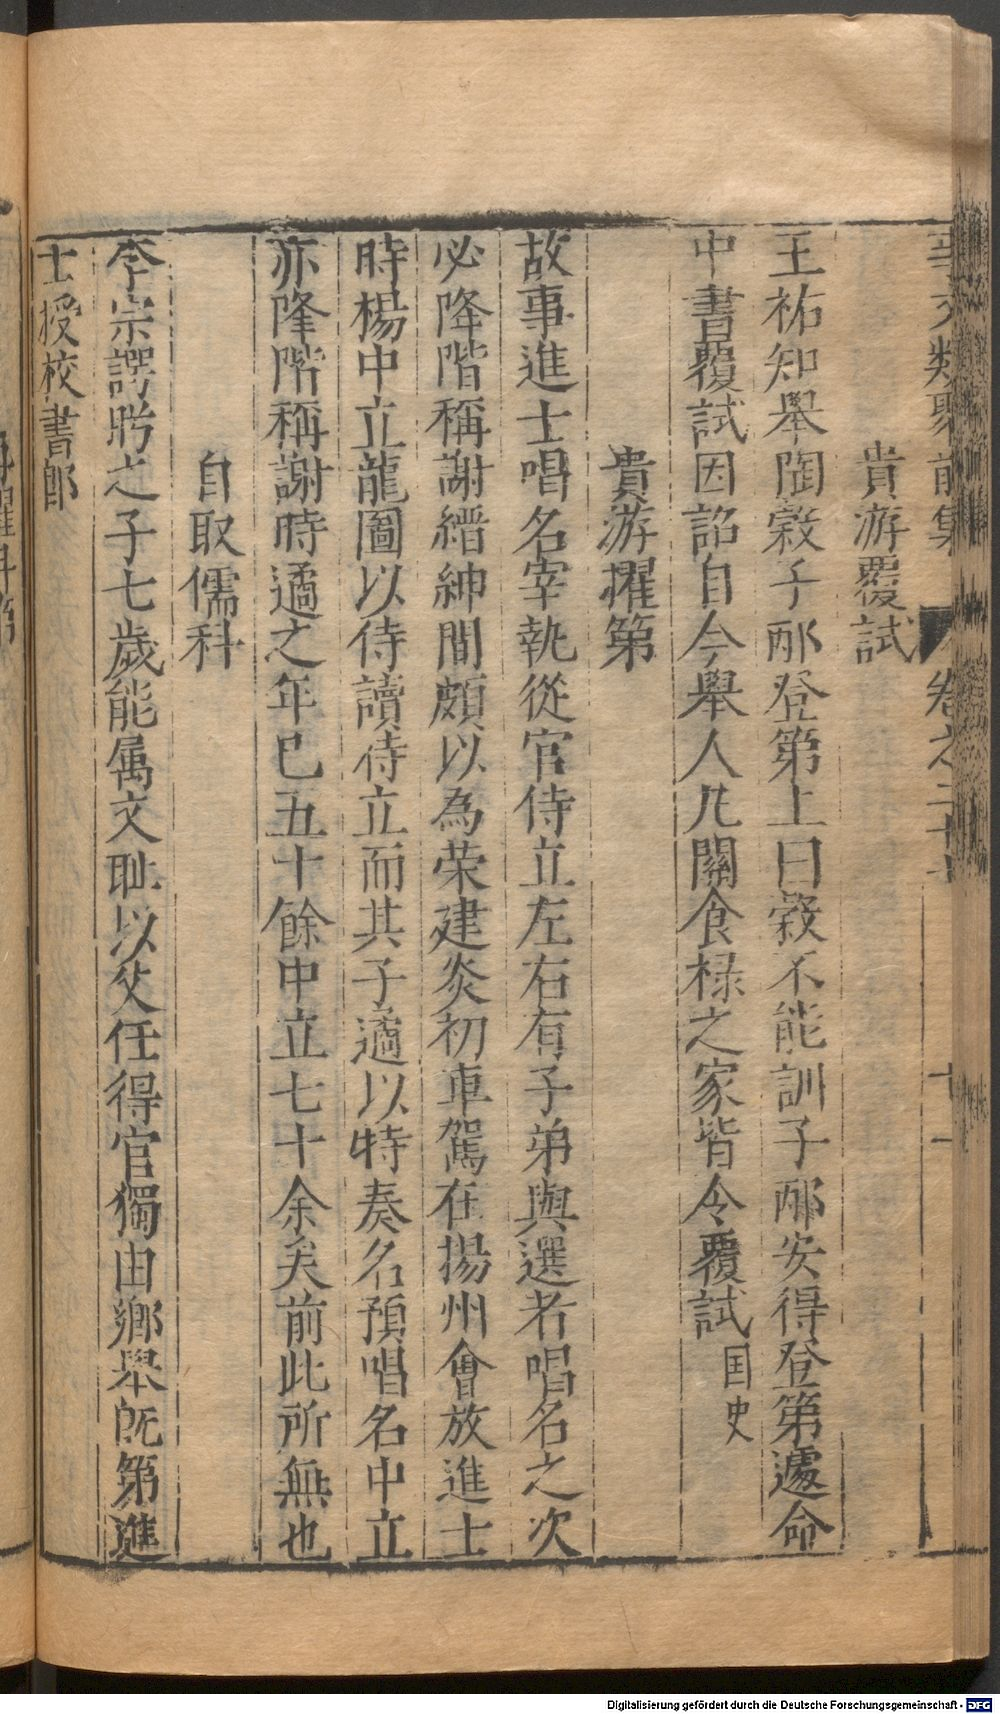 事文類聚前集 卷之二十七 十一
貴游覆試
王祐知舉陶穀子邴登第上曰穀不能訓子邴安得登第遽命
中書覆試因詔自今舉人凡關食祿之家皆令覆試国史
貴游擢第
故事進士唱名宰執從官侍立左右有子弟與選者唱名之次
必降階稱謝縉紳間頗以為荣建炎初車駕在揚州會放進士
時楊中立龍圖以侍讀侍立而其子適以特奏名預唱名中立
亦隆階稱謝時遹之年已五十餘中立七十余矣前此所無也
自取儒科
李宗諤昉之子七歲能属文耻以父任得官獨由鄉舉既第進
士授校書郎
Digitalisierung gefördert durch die Deutsche Forschungsgemeinschaft - DFG